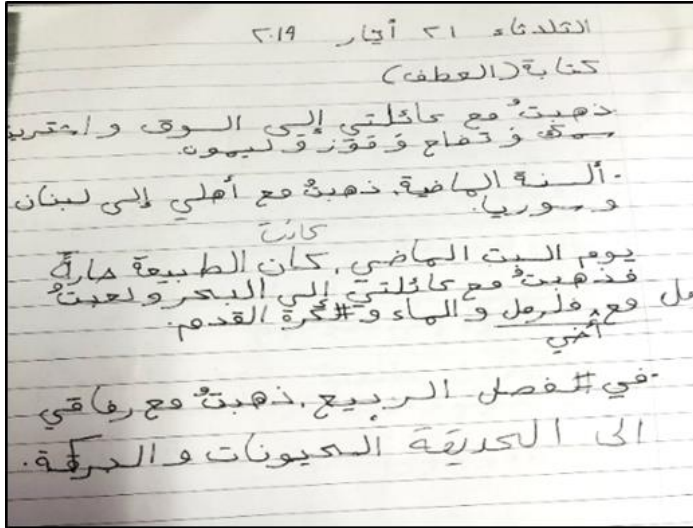 الثلدثاء ٢١ أيار ٢٠١٩
كتابة (العطف)
ذهبتُ مع عائلتي إلى السوق واشتريت
سمك وَ تفاح وَ قوز وَ ليمون.
- ألسنة الماضية، ذهبتُ مع أهلي إلى لبنان
و سوريا.
كانت
يوم السبت الماضي، كان الطبيعة حارةً
فذهبتُ مع عائلتي إلى البحر و لعبتُ
مع فلرمل و الماء و كرة القدم.
أخي
- في فصل الربيع، ذهبتُ مع رفاقي
الى الحديقة الحيونات و